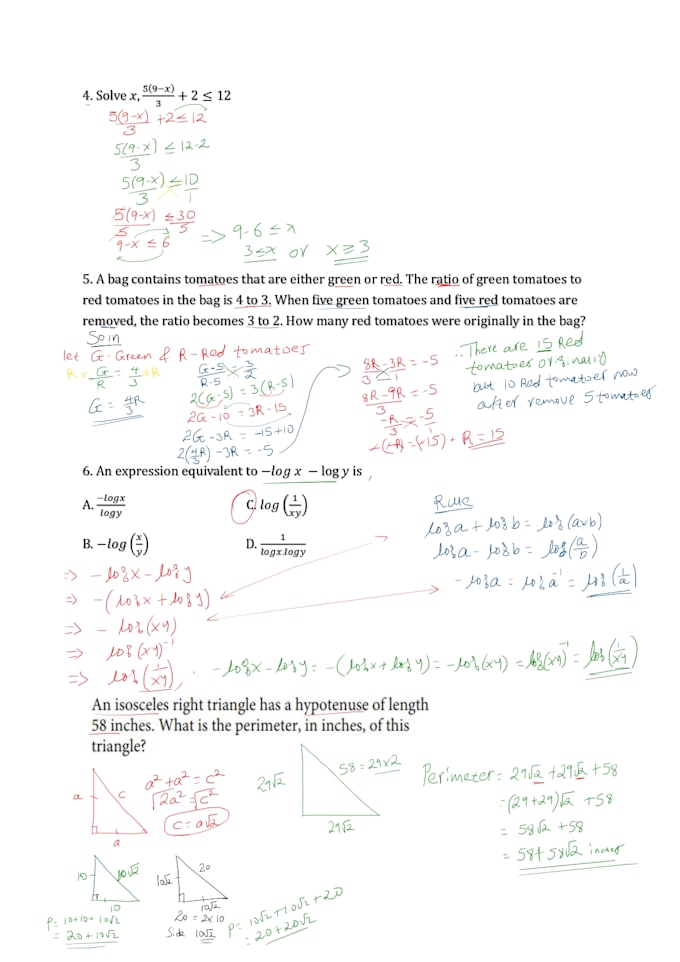 4. Solve x, 5(9−x)/3 + 2 ≤ 12
5(9-x)/3 +2 ≤ 12
5(9-x)/3 ≤ 12-2
5(9-x)/3 ≤ 10/1
5(9-x)/5 ≤ 30/5
9-x ≤ 6
=> 9-6 ≤ x
3 ≤ x or x ≥ 3
5. A bag contains tomatoes that are either green or red. The ratio of green tomatoes to
red tomatoes in the bag is 4 to 3. When five green tomatoes and five red tomatoes are
removed, the ratio becomes 3 to 2. How many red tomatoes were originally in the bag?
Soln
let G-Green & R-Red tomatoes
R× G/R = 4/3 ×R
G = 4R/3
G-5/R-5 = 3/2
2(G-5) = 3(R-5)
2G-10 = 3R-15
2G-3R = -15+10
2(4R/3)-3R = -5
8R/3 - 3R/1 = -5
8R-9R/3 = -5
-R/3 = -5/1
-(-R) = (-15) - R = 15
∴ There are 15 Red
tomatoes originally
but 10 Red tomatoes now
after remove 5 tomatoes
6. An expression equivalent to −log x − log y is
A. −logx/logy
C. log (1/xy)
B. −log (x/y)
D. 1/logx.logy
Rule
log a + log b = log (a×b)
log a - log b = log (a/b)
- log a = log a⁻¹ = log (1/a)
=> - log x - log y
=> - (log x + log y)
=> - log (xy)
=> log (xy)⁻¹
=> log (1/xy)
∴ - log x - log y = - (log x + log y) = - log (xy) = log (xy)⁻¹ = log (1/xy)
An isosceles right triangle has a hypotenuse of length
58 inches. What is the perimeter, in inches, of this
triangle?
a
c
a
a²+a² = c²
√2a² = √c²
c = a√2
29√2
58 = 29×2
29√2
Perimeter = 29√2 + 29√2 + 58
= (29+29)√2 + 58
= 58√2 + 58
= 58+58√2 inches
10
10√2
10
P = 10+10+10√2
= 20+10√2
10√2
20
10√2
20 = 2×10
Side 10√2
P = 10√2+10√2+20
= 20+20√2